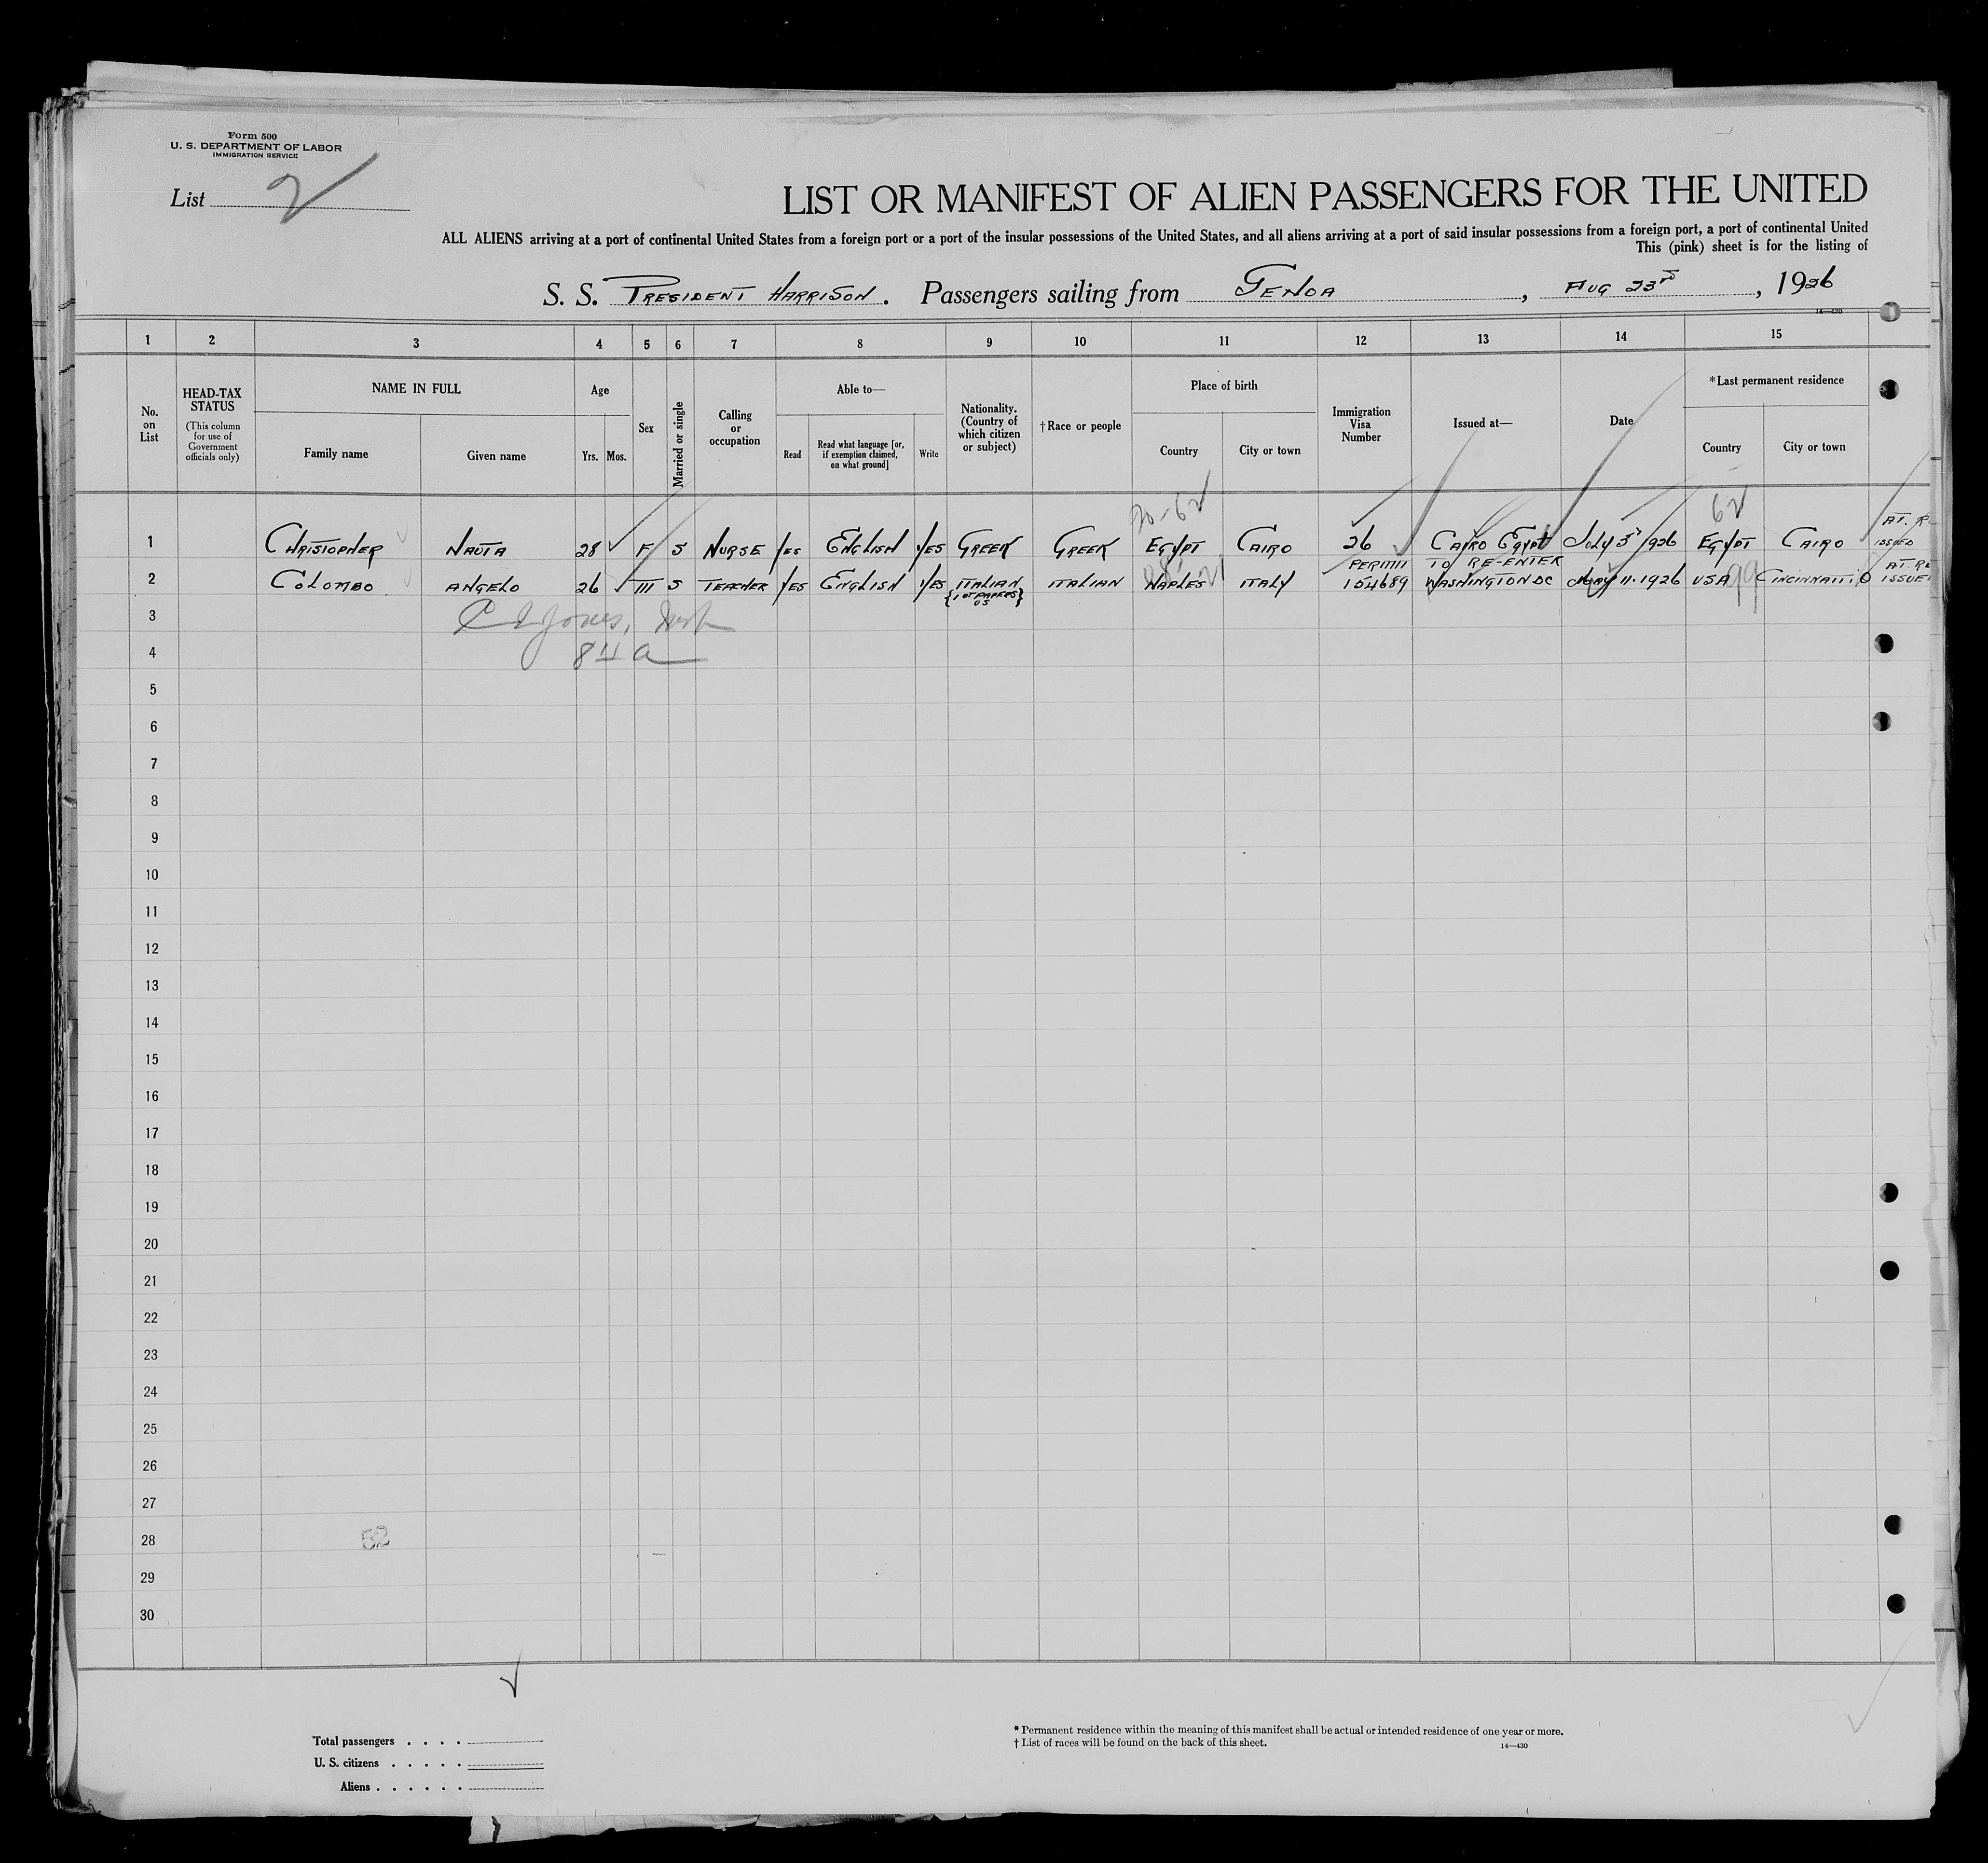 Form 500
U. S. DEPARTMENT OF LABOR
IMMIGRATION SERVICE
List 2
LIST OR MANIFEST OF ALIEN PASSENGERS FOR THE UNITED
ALL ALIENS arriving at a port of continental United States from a foreign port or a port of the insular possessions of the United States, and all aliens arriving at a port of said insular possessions from a foreign port, a port of continental United
This (pink) sheet is for the listing of
S. S. PRESIDENT HARRISON. Passengers sailing from GENOA, AUG 23rd, 1926
14—430
1 2 3 4 5 6 7 8 9 10 11 12 13 14 15
No. on List
HEAD-TAX STATUS
(This column for use of Government officials only)
NAME IN FULL
Family name Given name
Age
Yrs. Mos.
Sex
Married or single
Calling or occupation
Able to—
Read Read what language [or, if exemption claimed, on what ground] Write
Nationality. (Country of which citizen or subject)
† Race or people
Place of birth
Country City or town
Immigration Visa Number
Issued at—
Date
* Last permanent residence
Country City or town
20-62 62
1 CHRISTOPHER 28 F S NURSE YES ENGLISH YES GREEK GREEK EGYPT CAIRO 26 CAIRO EGYPT JULY 3 1926 EGYPT CAIRO ISSUED
PERMIT TO RE-ENTER
2 COLOMBO ANGELO 26 M S TEACHER YES ENGLISH YES ITALIAN ITALIAN NAPLES ITALY 154689 WASHINGTON DC MAY 11. 1926 USA 99 CINCINNATTI O
{1ST PAPERS US}
3
4
5
6
7
8
9
10
11
12
13
14
15
16
17
18
19
20
21
22
23
24
25
26
27
28 52
29
30
Total passengers . . . .
U. S. citizens . . . . .
Aliens . . . . . .
* Permanent residence within the meaning of this manifest shall be actual or intended residence of one year or more.
† List of races will be found on the back of this sheet.
14—430